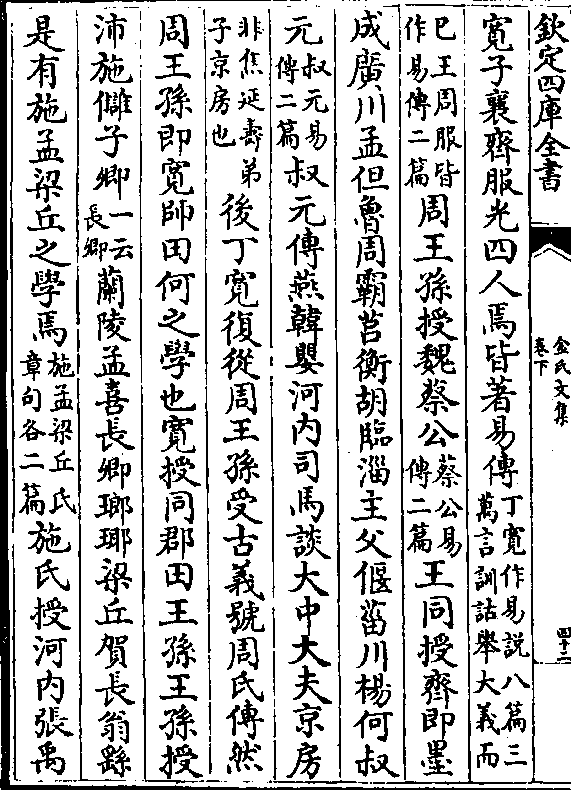 欽定四庫全書
金氏文集
卷下
四十二
寛子襄齊服光四人焉皆著易傳丁寛作易説八篇三
萬言訓詁舉大義而
已王周服皆
作易傳二篇周王孫授魏蔡公蔡公易
傳二篇王同授齊即墨
成廣川孟但魯周霸莒衡胡臨淄主父偃菑川楊何叔
元叔元易
傳二篇叔元傳燕韓嬰河内司馬談大中大夫京房
非焦延壽弟
子京房也後丁寛復從周王孫受古義號周氏傳然
周王孫即寛師田何之學也寛授同郡田王孫王孫授
沛施讎子卿一云
長卿蘭陵孟喜長卿瑯琊梁丘賀長翁繇
是有施孟梁丘之學焉施孟梁丘氏
章句各二篇施氏授河内張禹